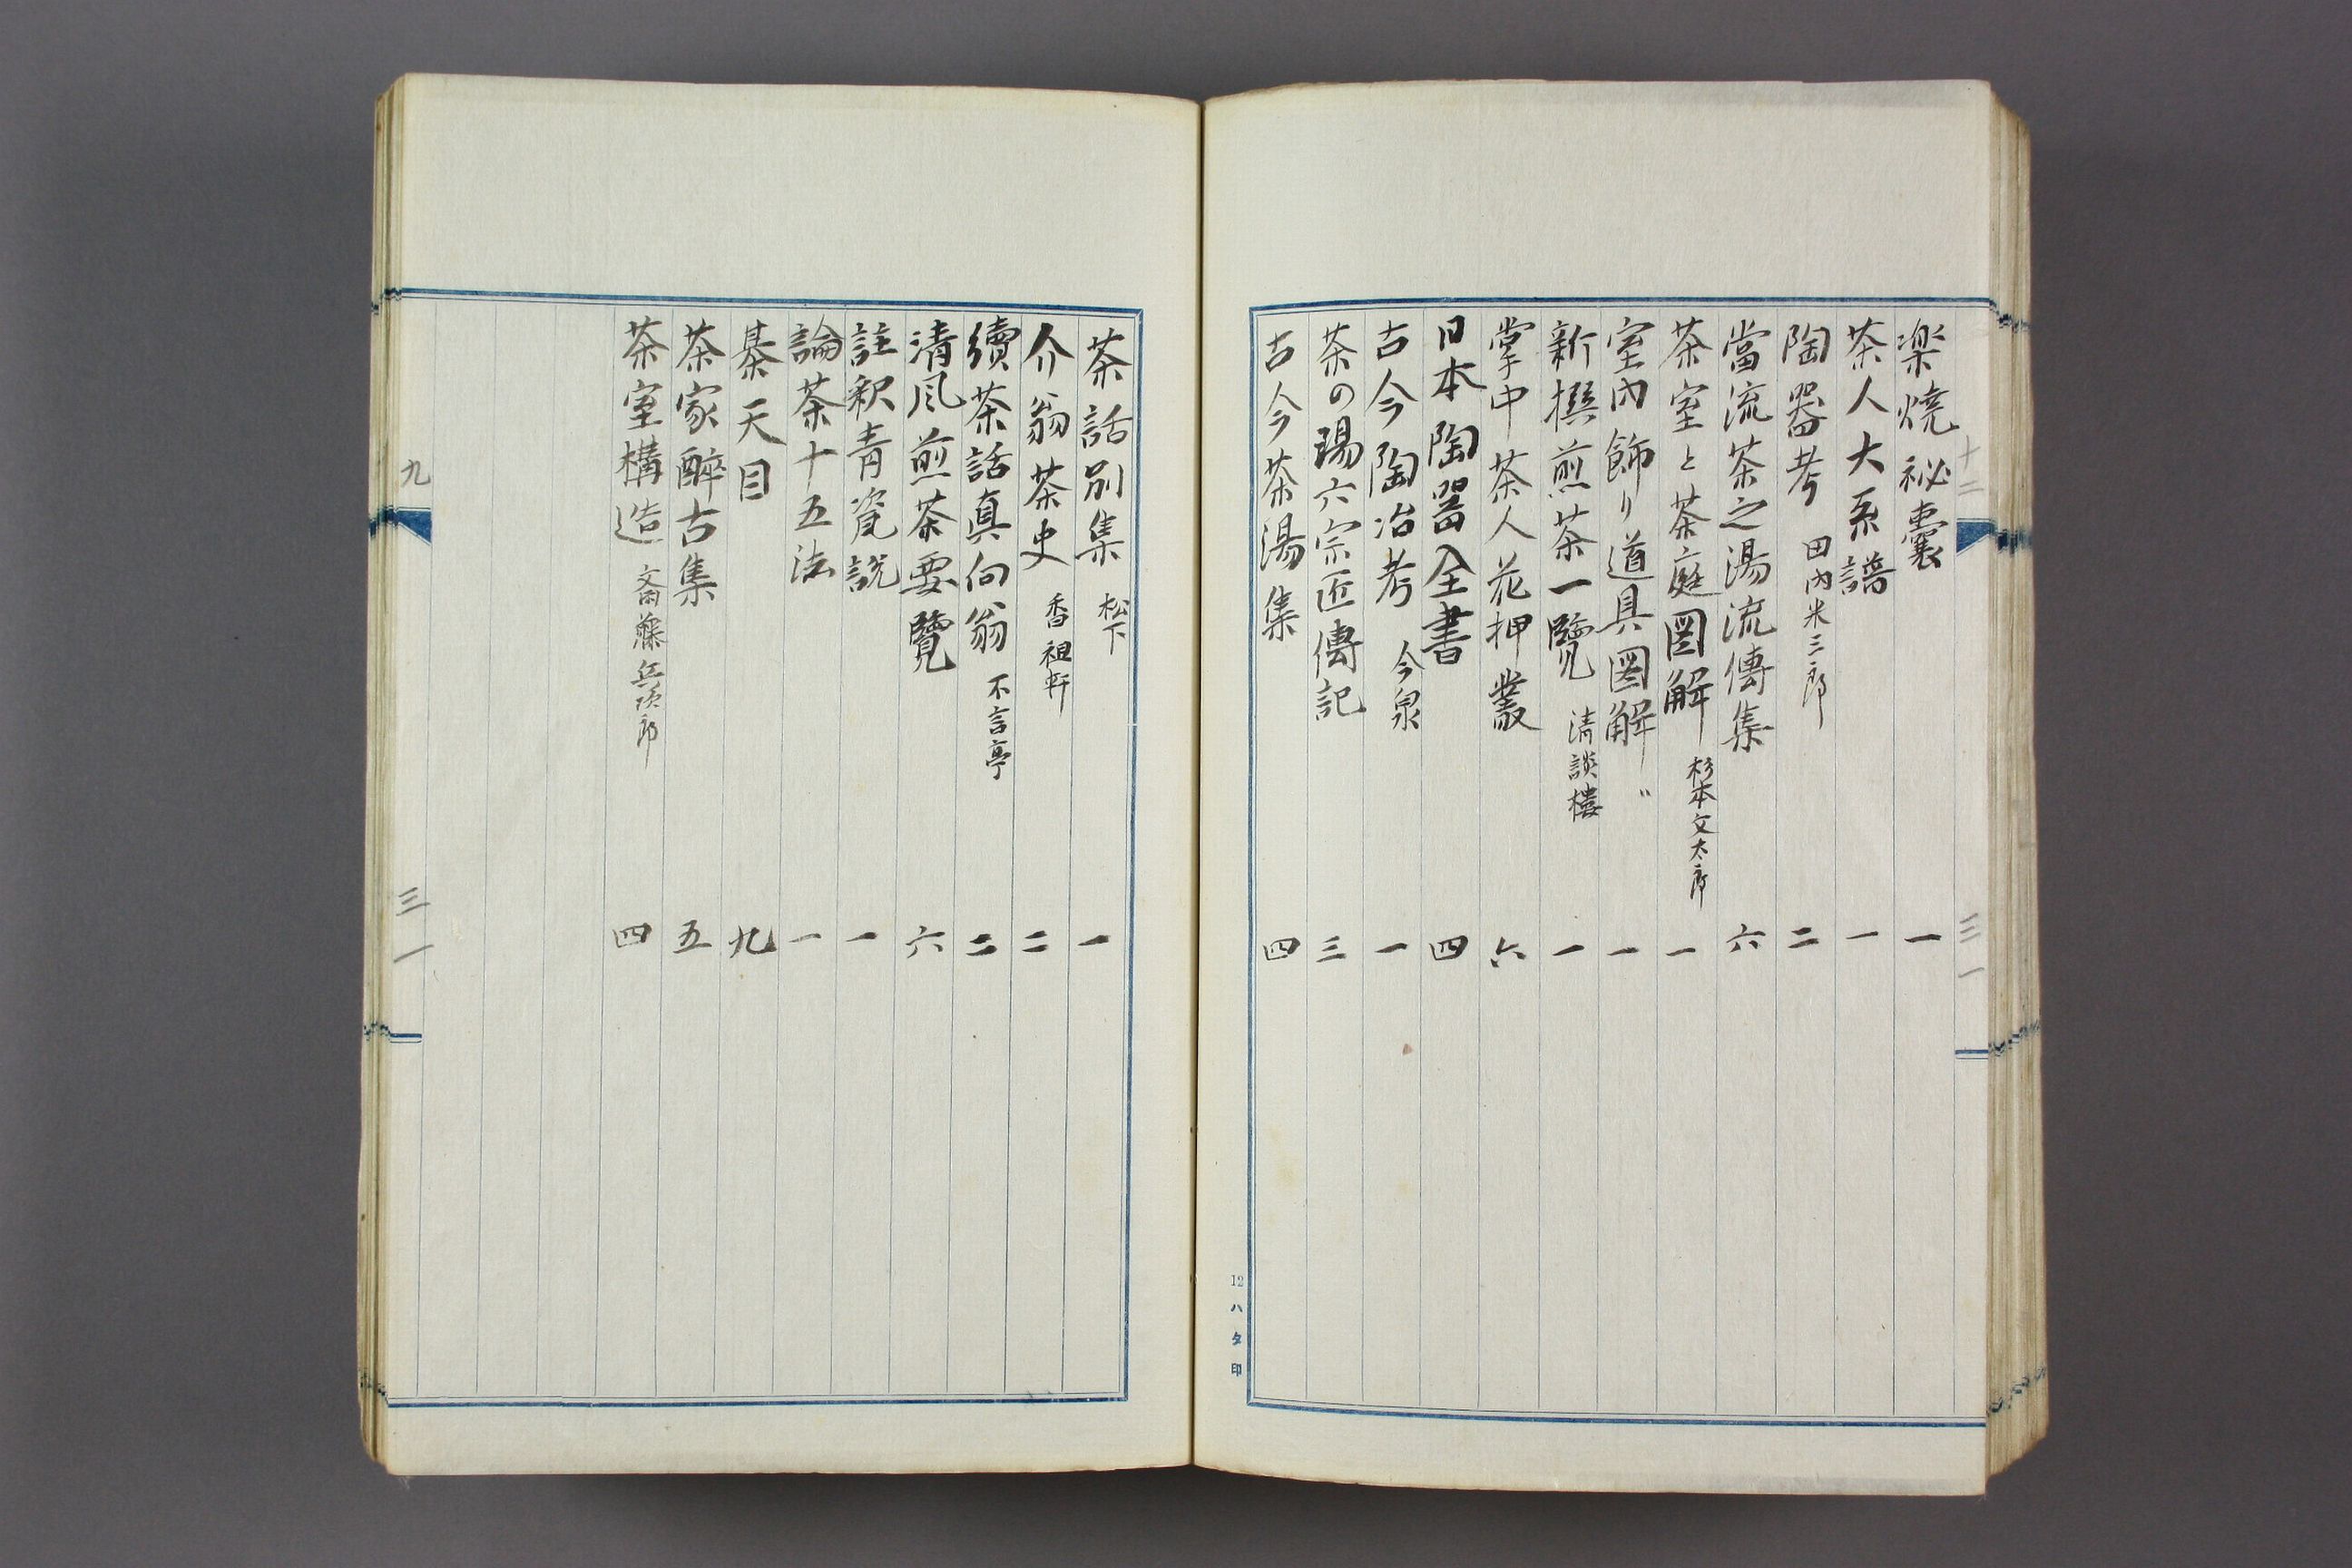 十二
三一
楽焼秘嚢 一
茶人大系譜 一
陶器考 田内米三郎 二
當流茶之湯流傳集 六
茶室と茶庭図解 杉本文太郎 一
室内飾り道具図解 〃 一
新撰煎茶一覽 清談樓 一
掌中茶人花押叢 六
日本陶器全書 四
古今陶冶考 今泉 一
茶の湯六宗匠傳記 三
古今茶湯集 四
12ハタ印
茶話別集 松下 一
介翁茶史 香祖軒 二
續茶話真向翁 不言亭 二
清風煎茶要覽 六
註釈青瓷説 一
論茶十五法 一
棊天目 九
茶家酔古集 五
茶室構造 斎藤兵次郎 四
九
三一